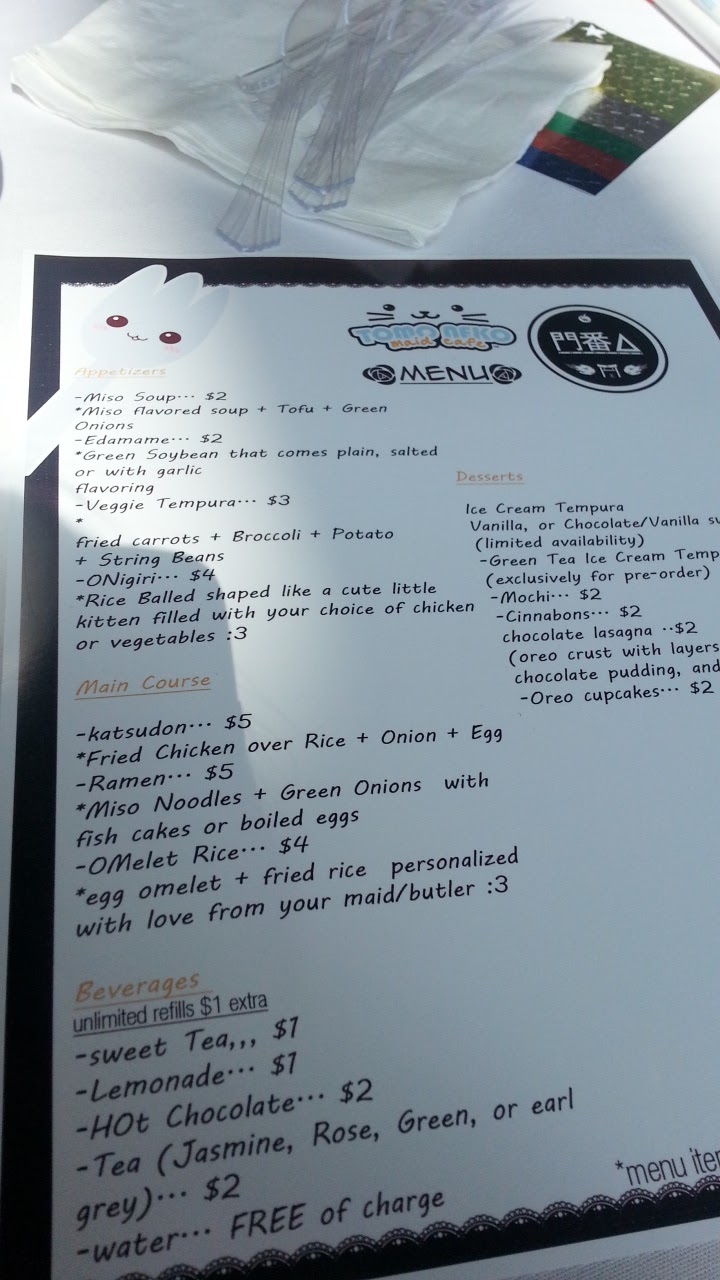 TOMO NEKO
maid cafe
門番
MENU
Appetizers
-Miso Soup··· $2
*Miso flavored soup + Tofu + Green
Onions
-Edamame··· $2
*Green Soybean that comes plain, salted
or with garlic
flavoring
-Veggie Tempura··· $3
*
fried carrots + Broccoli + Potato
+ String Beans
-ONigiri··· $4
*Rice Balled shaped like a cute little
kitten filled with your choice of chicken
or vegetables :3
Main Course
-katsudon··· $5
*Fried Chicken over Rice + Onion + Egg
-Ramen··· $5
*Miso Noodles + Green Onions with
fish cakes or boiled eggs
-OMelet Rice··· $4
*egg omelet + fried rice personalized
with love from your maid/butler :3
Beverages
unlimited refills $1 extra
-sweet Tea,,, $1
-Lemonade··· $1
-HOt Chocolate··· $2
-Tea (Jasmine, Rose, Green, or earl
grey)··· $2
-water··· FREE of charge
Desserts
Ice Cream Tempura
Vanilla, or Chocolate/Vanilla
(limited availability)
-Green Tea Ice Cream
(exclusively for pre-order)
-Mochi··· $2
-Cinnabons··· $2
chocolate lasagna ··$2
(oreo crust with layers
chocolate pudding, and
-Oreo cupcakes··· $2
*menu